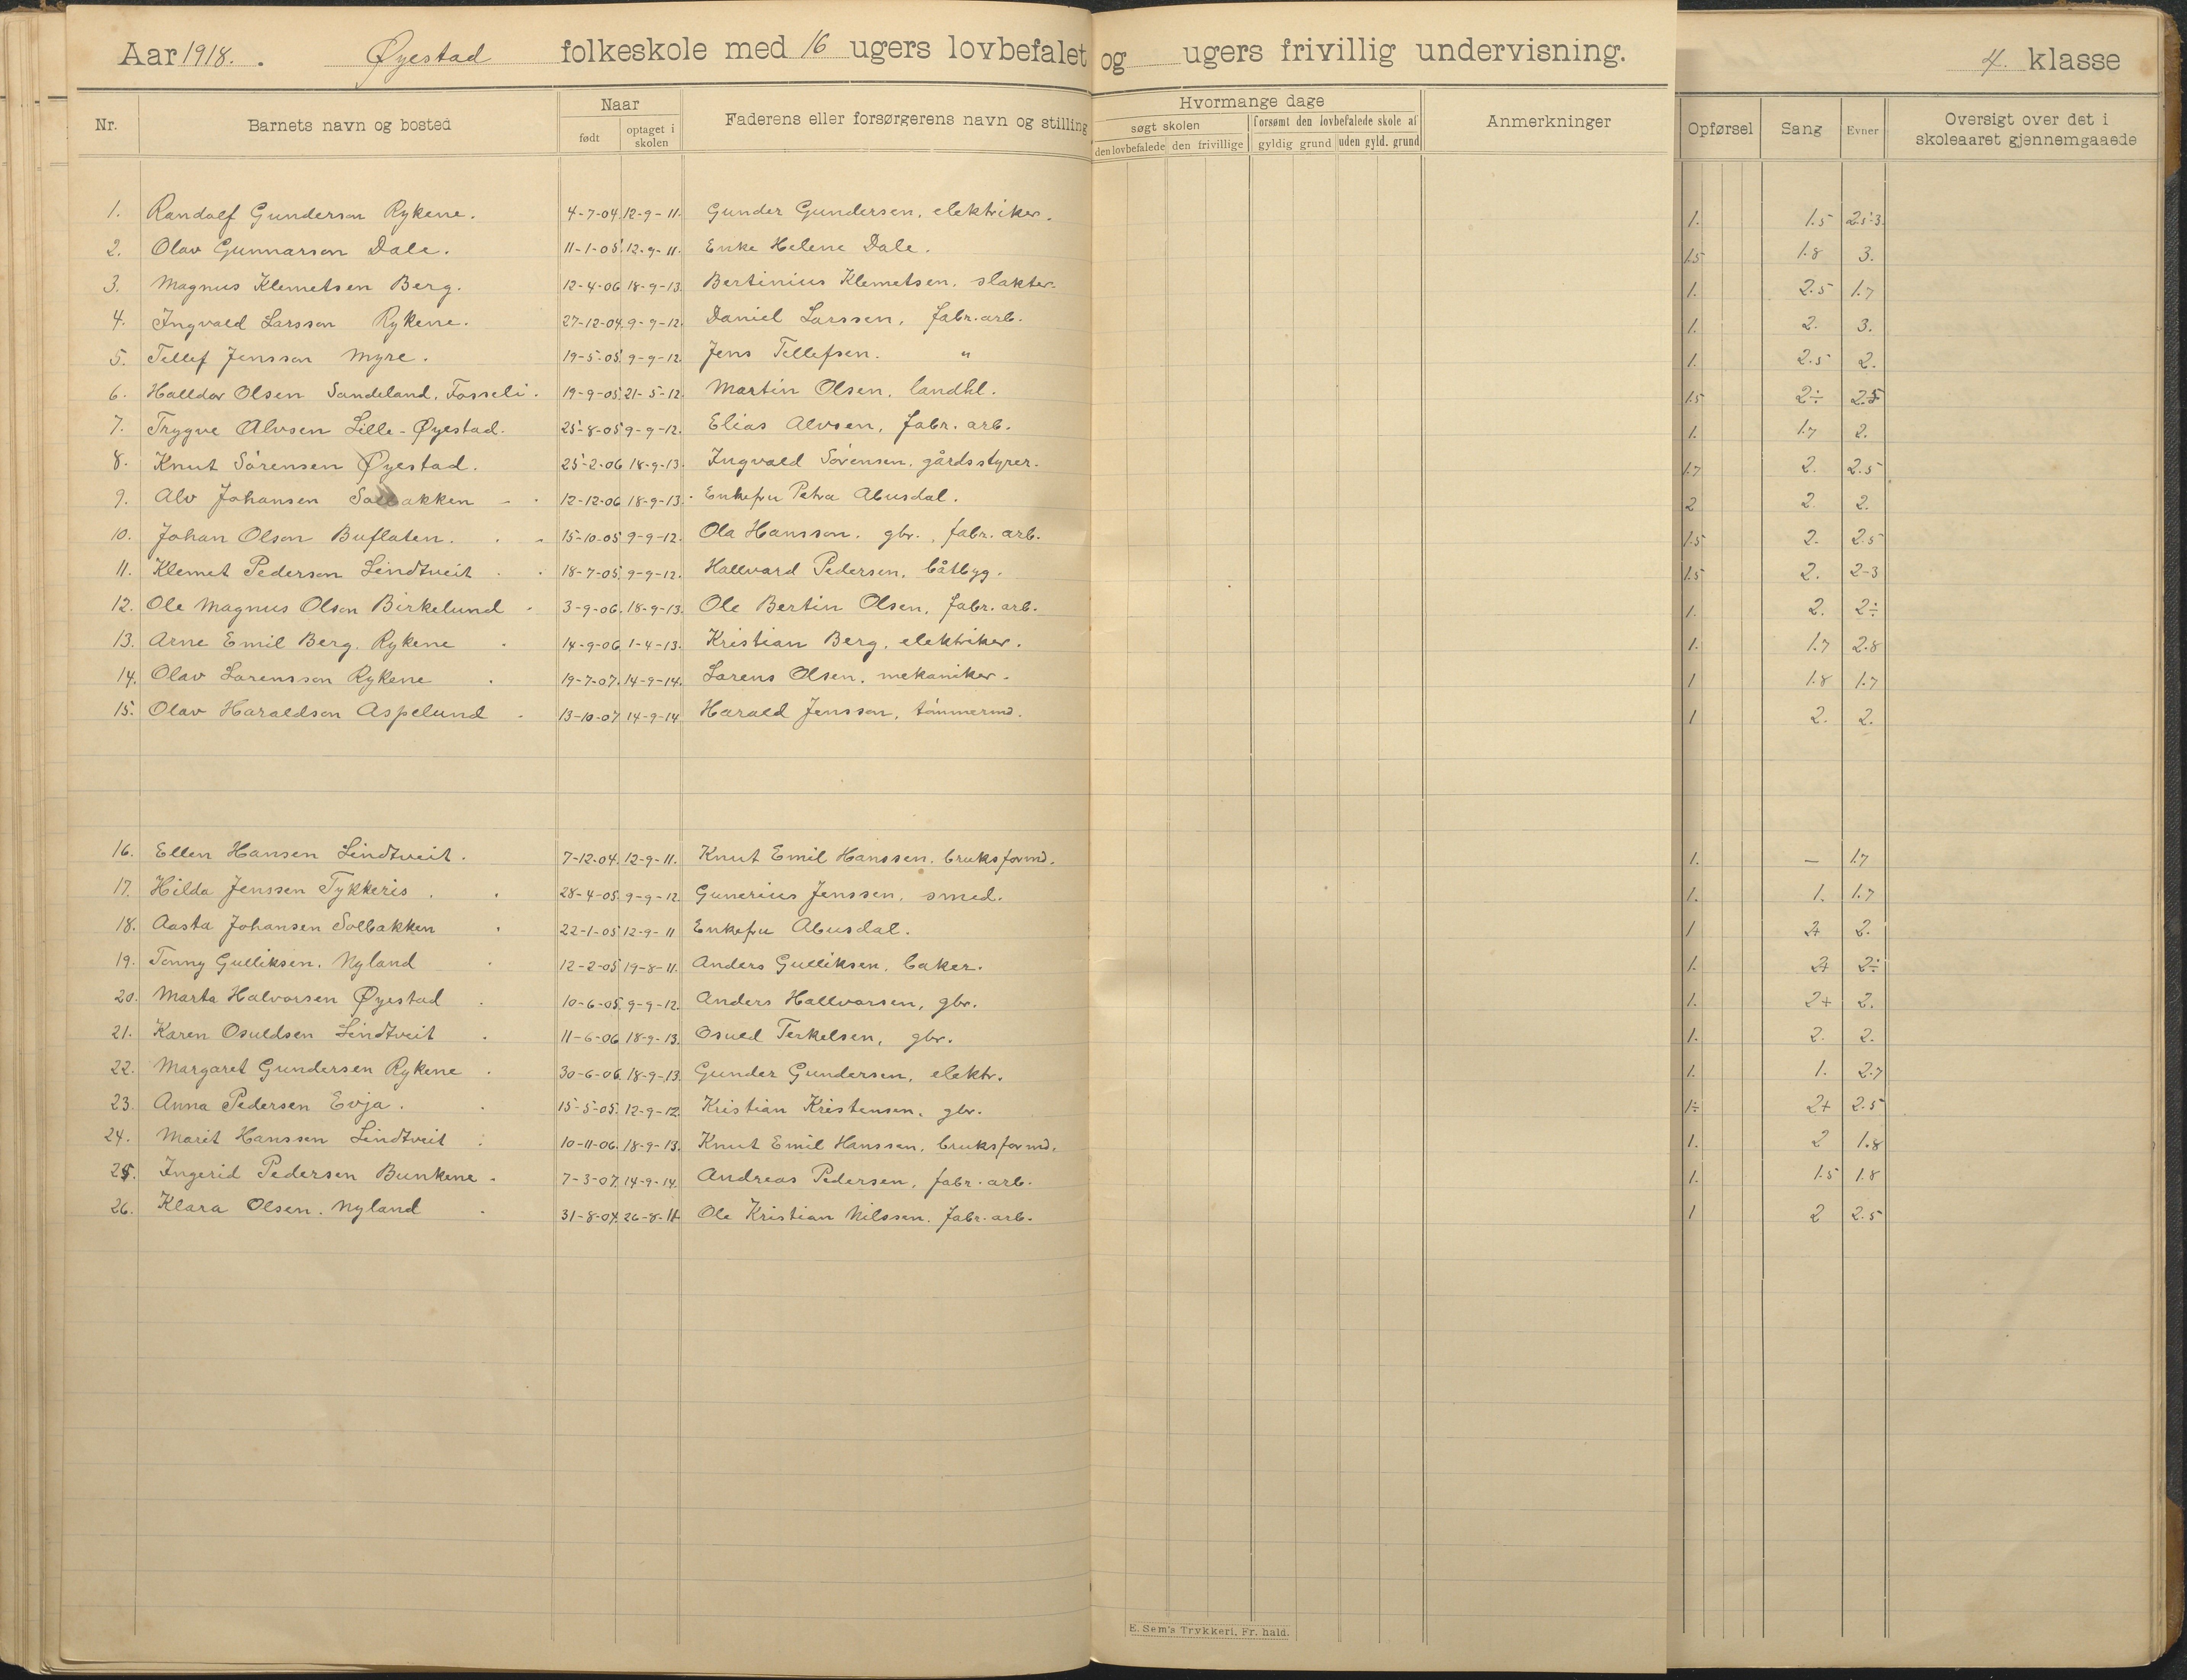 Aar 1918. Øyestad folkeskole med 16 ugers lovbefalet og ugers frivillig undervisning. 4. klasse
Nr. Barnets navn og bosted Naar født optaget i skolen Faderens eller forsørgerens navn og stilling Hvormange dage søgt skolen den lovbefalede den frivillige forsømt den lovbefalede skole af gyldig grund uden gyld. grund Anmerkninger Opførsel Sang Evner Oversigt over det i skoleaaret gjennemgaaede
1. Randolf Gunderson Rykene. 4-7-04. 12-9-11. Gunder Gundersen, elektriker. 1. 1.5 2.5-3.
2. Olav Gunnarson Dale. 11-1-05. 12-9-11. Enke Helene Dale. 1.5 1.8 3.
3. Magnus Klemetsen Berg. 12-4-06 18-9-13. Bertinius Klemetsen, slakter. 1. 2.5 1.7
4. Ingvald Larsson Rykene. 27-12-04. 9-9-12. Daniel Larssen, fabr.arb. 1. 2. 3.
5. Tellef Jensson Myre. 19-5-05. 9-9-12. Jens Tellefsen. " 1. 2.5 2.
6. Halldor Olsen Sandeland, Fosseli. 19-9-05. 21-5-12. Martin Olsen, landhl. 1.5 2÷ 2.5
7. Trygve Alvsen Lille-Øyestad. 25-8-05 9-9-12. Elias Alvsen, fabr. arb. 1. 1.7 2.
8. Knut Sörensen Øyestad. 25-2-06 18-9-13. Ingvald Sörensen, gårdsstyrer. 1.7 2. 2.5
9. Alv Johansen Solbakken 12-12-06 18-9-13. Enkefru Petra Abusdal. 2 2. 2.
10. Johan Olson Buflaten. 15-10-05 9-9-12. Ola Hansson, gbr., fabr. arb. 1.5 2. 2.5
11. Klemet Pederson Lindtveit 18-7-05. 9-9-12. Hallvard Pedersen, båtbyg. 1.5 2. 2-3
12. Ole Magnus Olson Birkelund 3-9-06. 18-9-13. Ole Bertin Olsen, fabr. arb. 1. 2. 2÷
13. Arne Emil Berg, Rykene 14-9-06 1-4-13. Kristian Berg, elektriker. 1. 1.7 2.8
14. Olav Lorensson Rykene 19-7-07. 14-9-14. Lorens Olsen, mekaniker. 1 1.8 1.7
15. Olav Haraldson Aspelund 13-10-07 14-9-14 Harald Jensson, tömmermd. 1 2. 2.
16. Ellen Hansen Lindtveit. 7-12-04. 12-9-11. Knut Emil Hanssen, bruksformd. 1. — 1.7
17. Hilda Jenssen Tykkeris 28-4-05. 9-9-12. Gunerius Jenssen, smed. 1. 1. 1.7
18. Aasta Johansen Solbakken 22-1-05 12-9-11 Enkefru Abusdal. 1 2+ 2.
19. Tonny Gulliksen, Nyland 12-2-05 19-8-11. Anders Gulliksen, baker. 1. 2+ 2÷
20. Marta Halvorsen Øyestad 10-6-05. 9-9-12. Anders Hallvorsen, gbr. 1. 2+ 2.
21. Karen Osuldsen Lindtveit 11-6-06 18-9-13. Osuld Terkelsen, gbr. 1. 2. 2.
22. Margaret Gundersen Rykene 30-6-06. 18-9-13. Gunder Gundersen, elektr. 1. 1. 2.7
23. Anna Pedersen Evja. 15-5-05. 12-9-12. Kristian Kristensen, gbr. 1÷ 2+ 2.5
24. Marit Hanssen Lindtveit 10-11-06. 18-9-13. Knut Emil Hanssen, bruksformd. 1. 2 1.8
25. Ingerid Pedersen Bunkene. 7-3-07. 14-9-14. Andreas Pedersen, fabr. arb. 1. 1.5 1.8
26. Klara Olsen, Nyland 31-8-04. 26-8-11 Ole Kristian Nilssen, fabr. arb. 1 2 2.5
E. Sem's Trykkeri, Fr. hald.